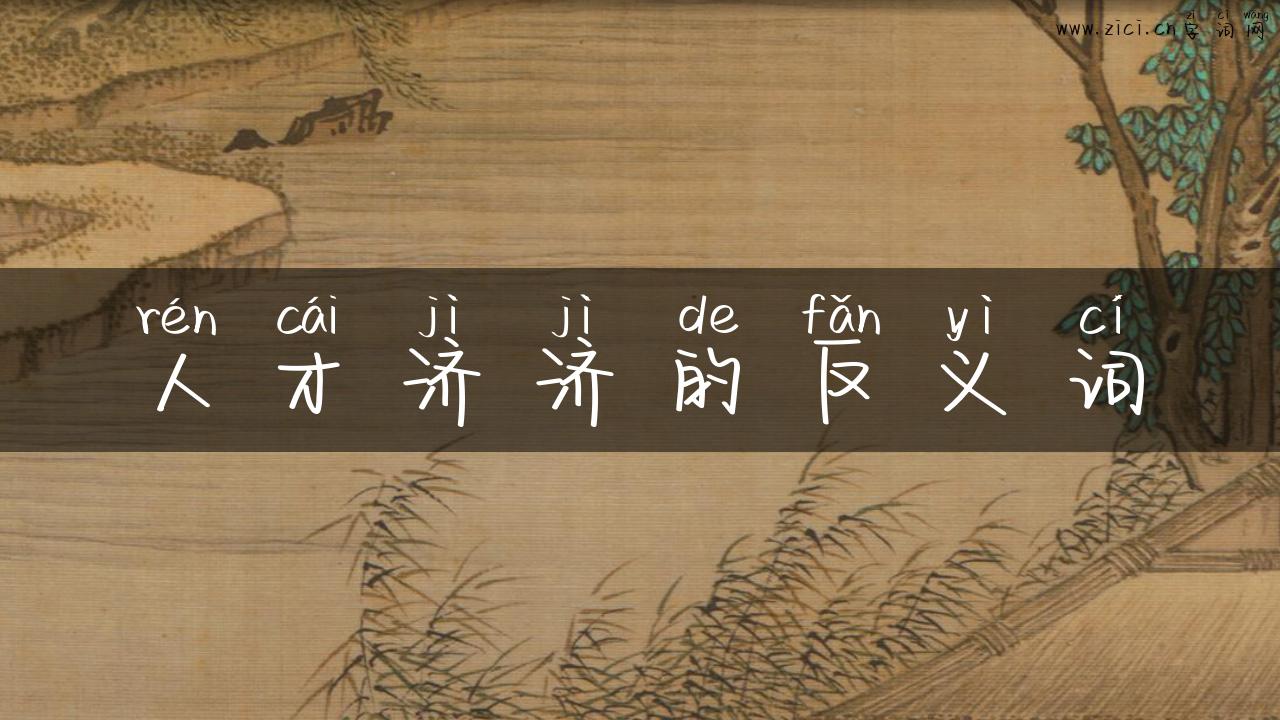 zì cí wǎng
www.zici.cn字词网
rén cái jì jì de fǎn yì cí
人才济济的反义词